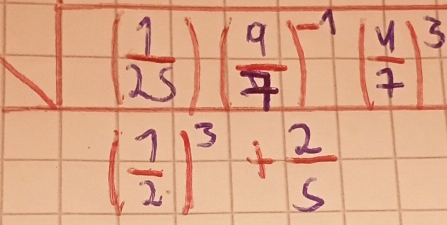 (1/25) (9/7)^-1 (4/7)^3
(1/2)^3 + 2/5